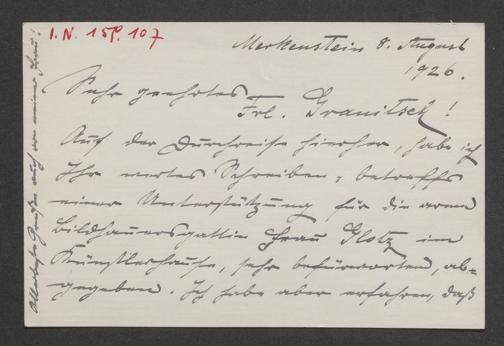 I.N. 158.107
Merkenstein 8. August
1926.
Sehr geehrtes
Frl. Granitsch!
Auf der Durchreise hierher, habe ich
Ihr wertes Schreiben, betreffs
einer Unterstützung für die arme
Bildhauersgattin Frau Glotz im
Künstlerhause, sehr befürwortend, ab=
gegeben. Ich habe aber erfahren, daß
Allerbeste Grüße auch von meiner Frau!